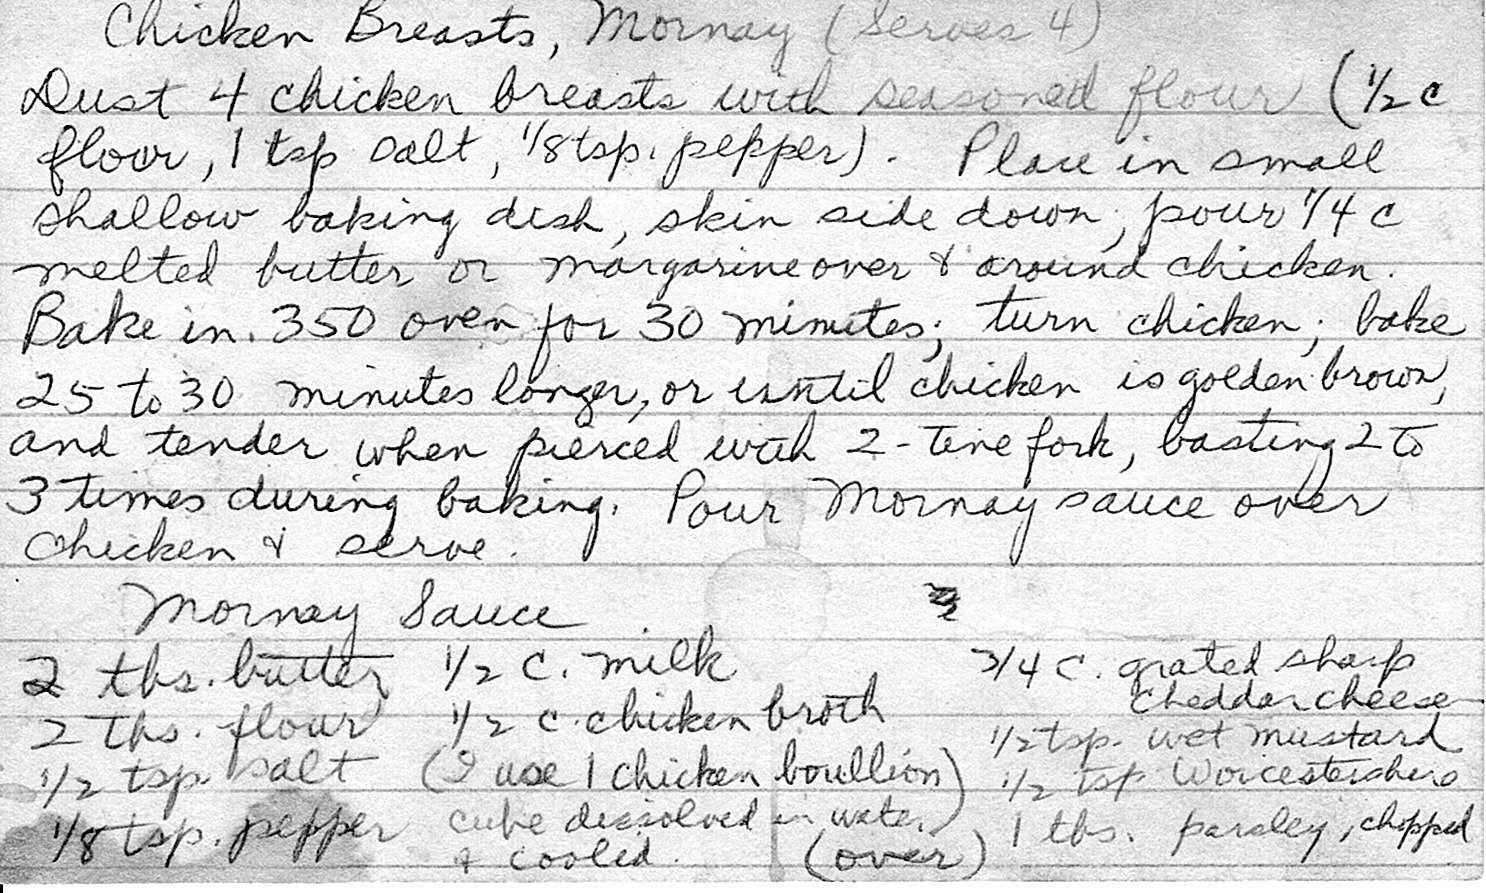 Chicken Breasts, Mornay (Serves 4)
Dust 4 chicken breasts with seasoned flour (1/2 c
flour, 1 tsp salt, 1/8 tsp. pepper). Place in small
shallow baking dish, skin side down; pour 1/4 c
melted butter or margarine over & around chicken.
Bake in 350 oven for 30 minutes; turn chicken; bake
25 to 30 minutes longer, or until chicken is golden brown,
and tender when pierced with 2-tine fork, basting 2 to
3 times during baking. Pour Mornay sauce over
chicken & serve.
Mornay Sauce
2 tbs. butter
2 tbs. flour
1/2 tsp. salt
1/8 tsp. pepper
1/2 c. milk
1/2 c. chicken broth
(I use 1 chicken boullion
cube dissolved in water)
& cooled.
(over)
3/4 c. grated sharp
cheddar cheese
1/2 tsp. wet mustard
1/2 tsp Worcestershire
1 tbs. parsley, chopped